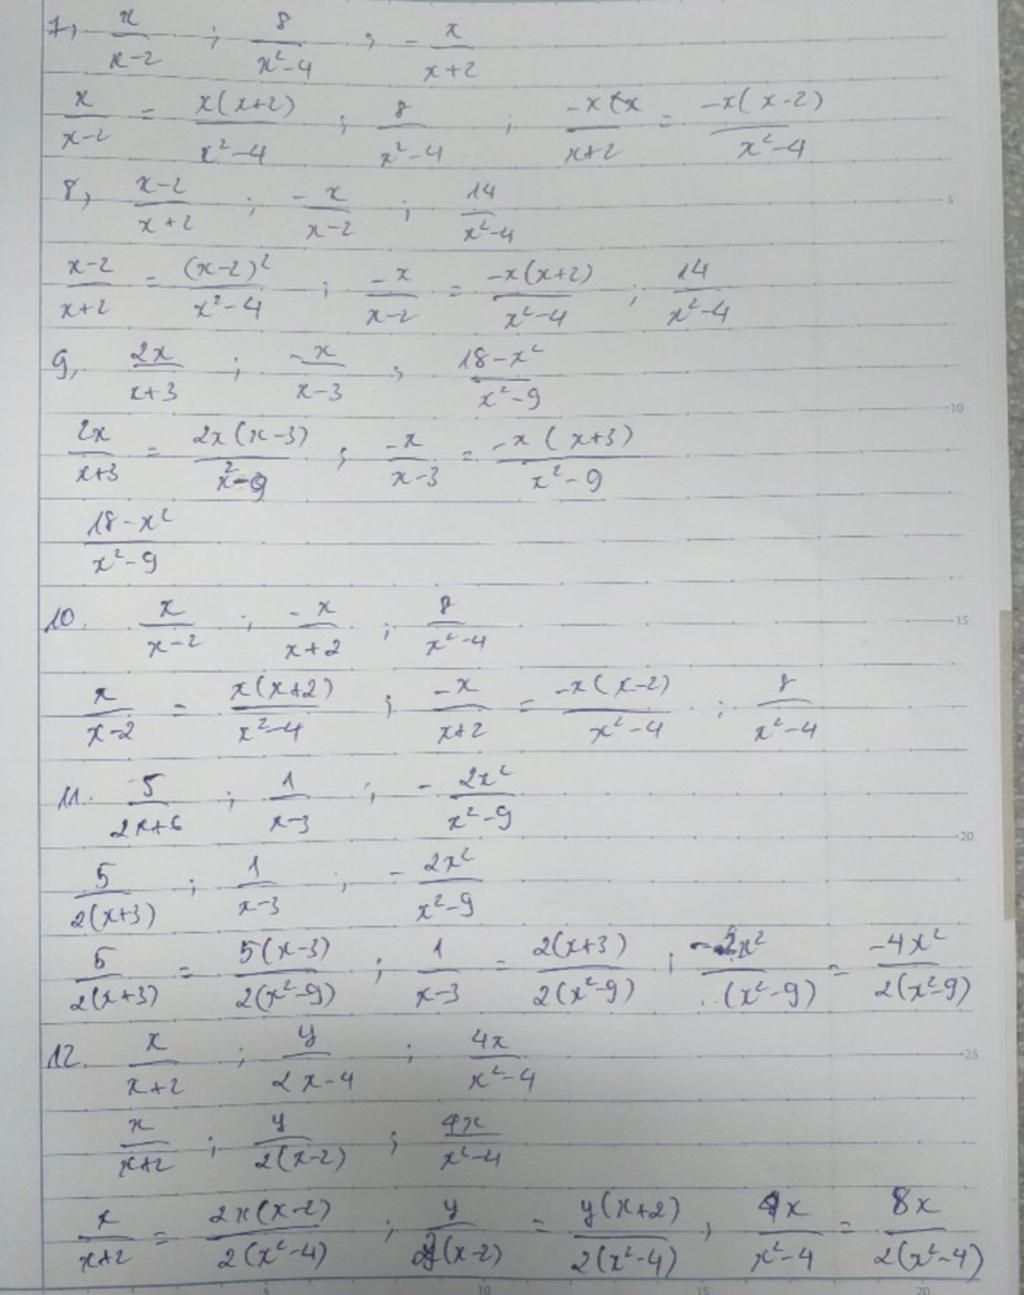 7, x/(x-2) ; 8/(x²-4) ; -x/(x+2)
x/(x-2) = x(x+2)/(x²-4) ; 8/(x²-4) ; -x(x/(x+2) = -x(x-2)/(x²-4)
8, (x-2)/(x+2) ; -x/(x-2) ; 14/(x²-4)
5
(x-2)/(x+2) = (x-2)²/(x²-4) ; -x/(x-2) = -x(x+2)/(x²-4) ; 14/(x²-4)
9, 2x/(x+3) ; -x/(x-3) ; (18-x²)/(x²-9)
10
2x/(x+3) = 2x(x-3)/(x²-9) ; -x/(x-3) = -x(x+3)/(x²-9)
(18-x²)/(x²-9)
10. x/(x-2) ; -x/(x+2) ; 8/(x²-4)
15
x/(x-2) = x(x+2)/(x²-4) ; -x/(x+2) = -x(x-2)/(x²-4) ; 8/(x²-4)
11. 5/(2x+6) ; 1/(x-3) ; -2x²/(x²-9)
20
5/(2(x+3)) ; 1/(x-3) ; -2x²/(x²-9)
5/(2(x+3)) = 5(x-3)/(2(x²-9)) ; 1/(x-3) = 2(x+3)/(2(x²-9)) ; -2x²/(x²-9) = -4x²/(2(x²-9))
12. x/(x+2) ; y/(2x-4) ; 4x/(x²-4)
25
x/(x+2) ; y/(2(x-2)) ; 4x/(x²-4)
x/(x+2) = 2x(x-2)/(2(x²-4)) ; y/(2(x-2)) = y(x+2)/(2(x²-4)) ; 4x/(x²-4) = 8x/(2(x²-4))
5 10 15 20